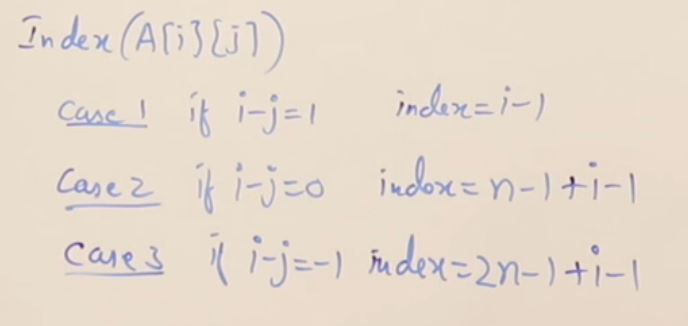 Index(A[i][j])
Case 1 if i-j=1 index=i-1
Case 2 if i-j=0 index=n-1+i-1
Case 3 if i-j=-1 index=2n-1+i-1